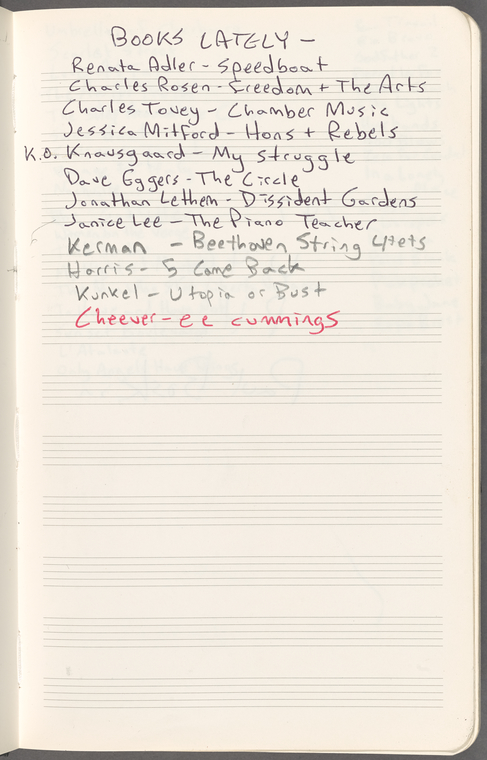 BOOKS LATELY –
Renata Adler - Speedboat
Charles Rosen - Freedom + The Arts
Charles Tovey - Chamber Music
Jessica Mitford - Hons + Rebels
K.O. Knausgaard - My Struggle
Dave Eggers - The Circle
Jonathan Lethem - Dissident Gardens
Janice Lee - The Piano Teacher
Kerman - Beethoven String 4tets
Harris - 5 Came Back
Kunkel - Utopia or Bust
Cheever - e e cummings